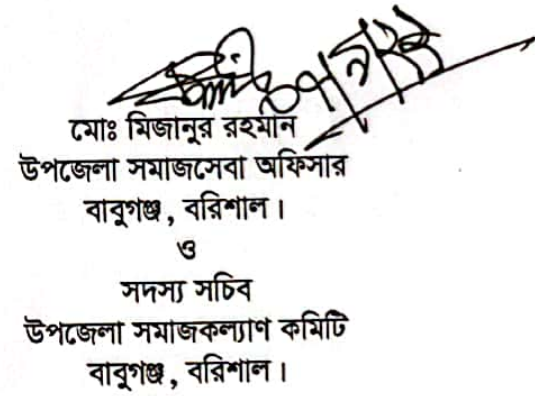 মোঃ মিজানুর রহমান
উপজেলা সমাজসেবা অফিসার
বাবুগঞ্জ, বরিশাল।
ও
সদস্য সচিব
উপজেলা সমাজকল্যাণ কমিটি
বাবুগঞ্জ, বরিশাল।